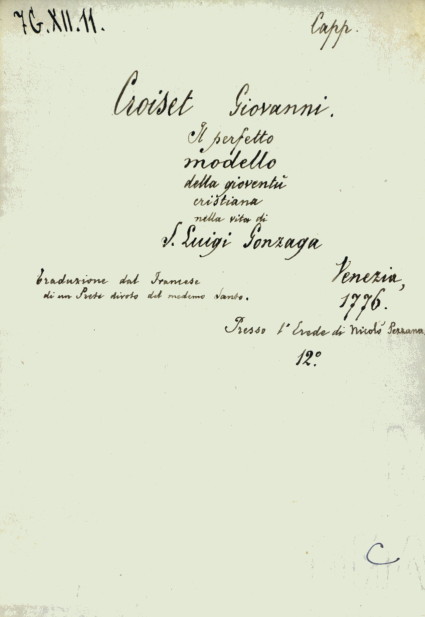 7G.XII.11.
Capp.
Croiset Giovanni.
Il perfetto
modello
della gioventù
cristiana
nella vita di
S. Luigi Gonzaga
Traduzione dal Francese
di un Prete divoto del medemo Santo.
Venezia,
1776.
Presso l'Erede di Nicolò Pezzana,
12º.
C